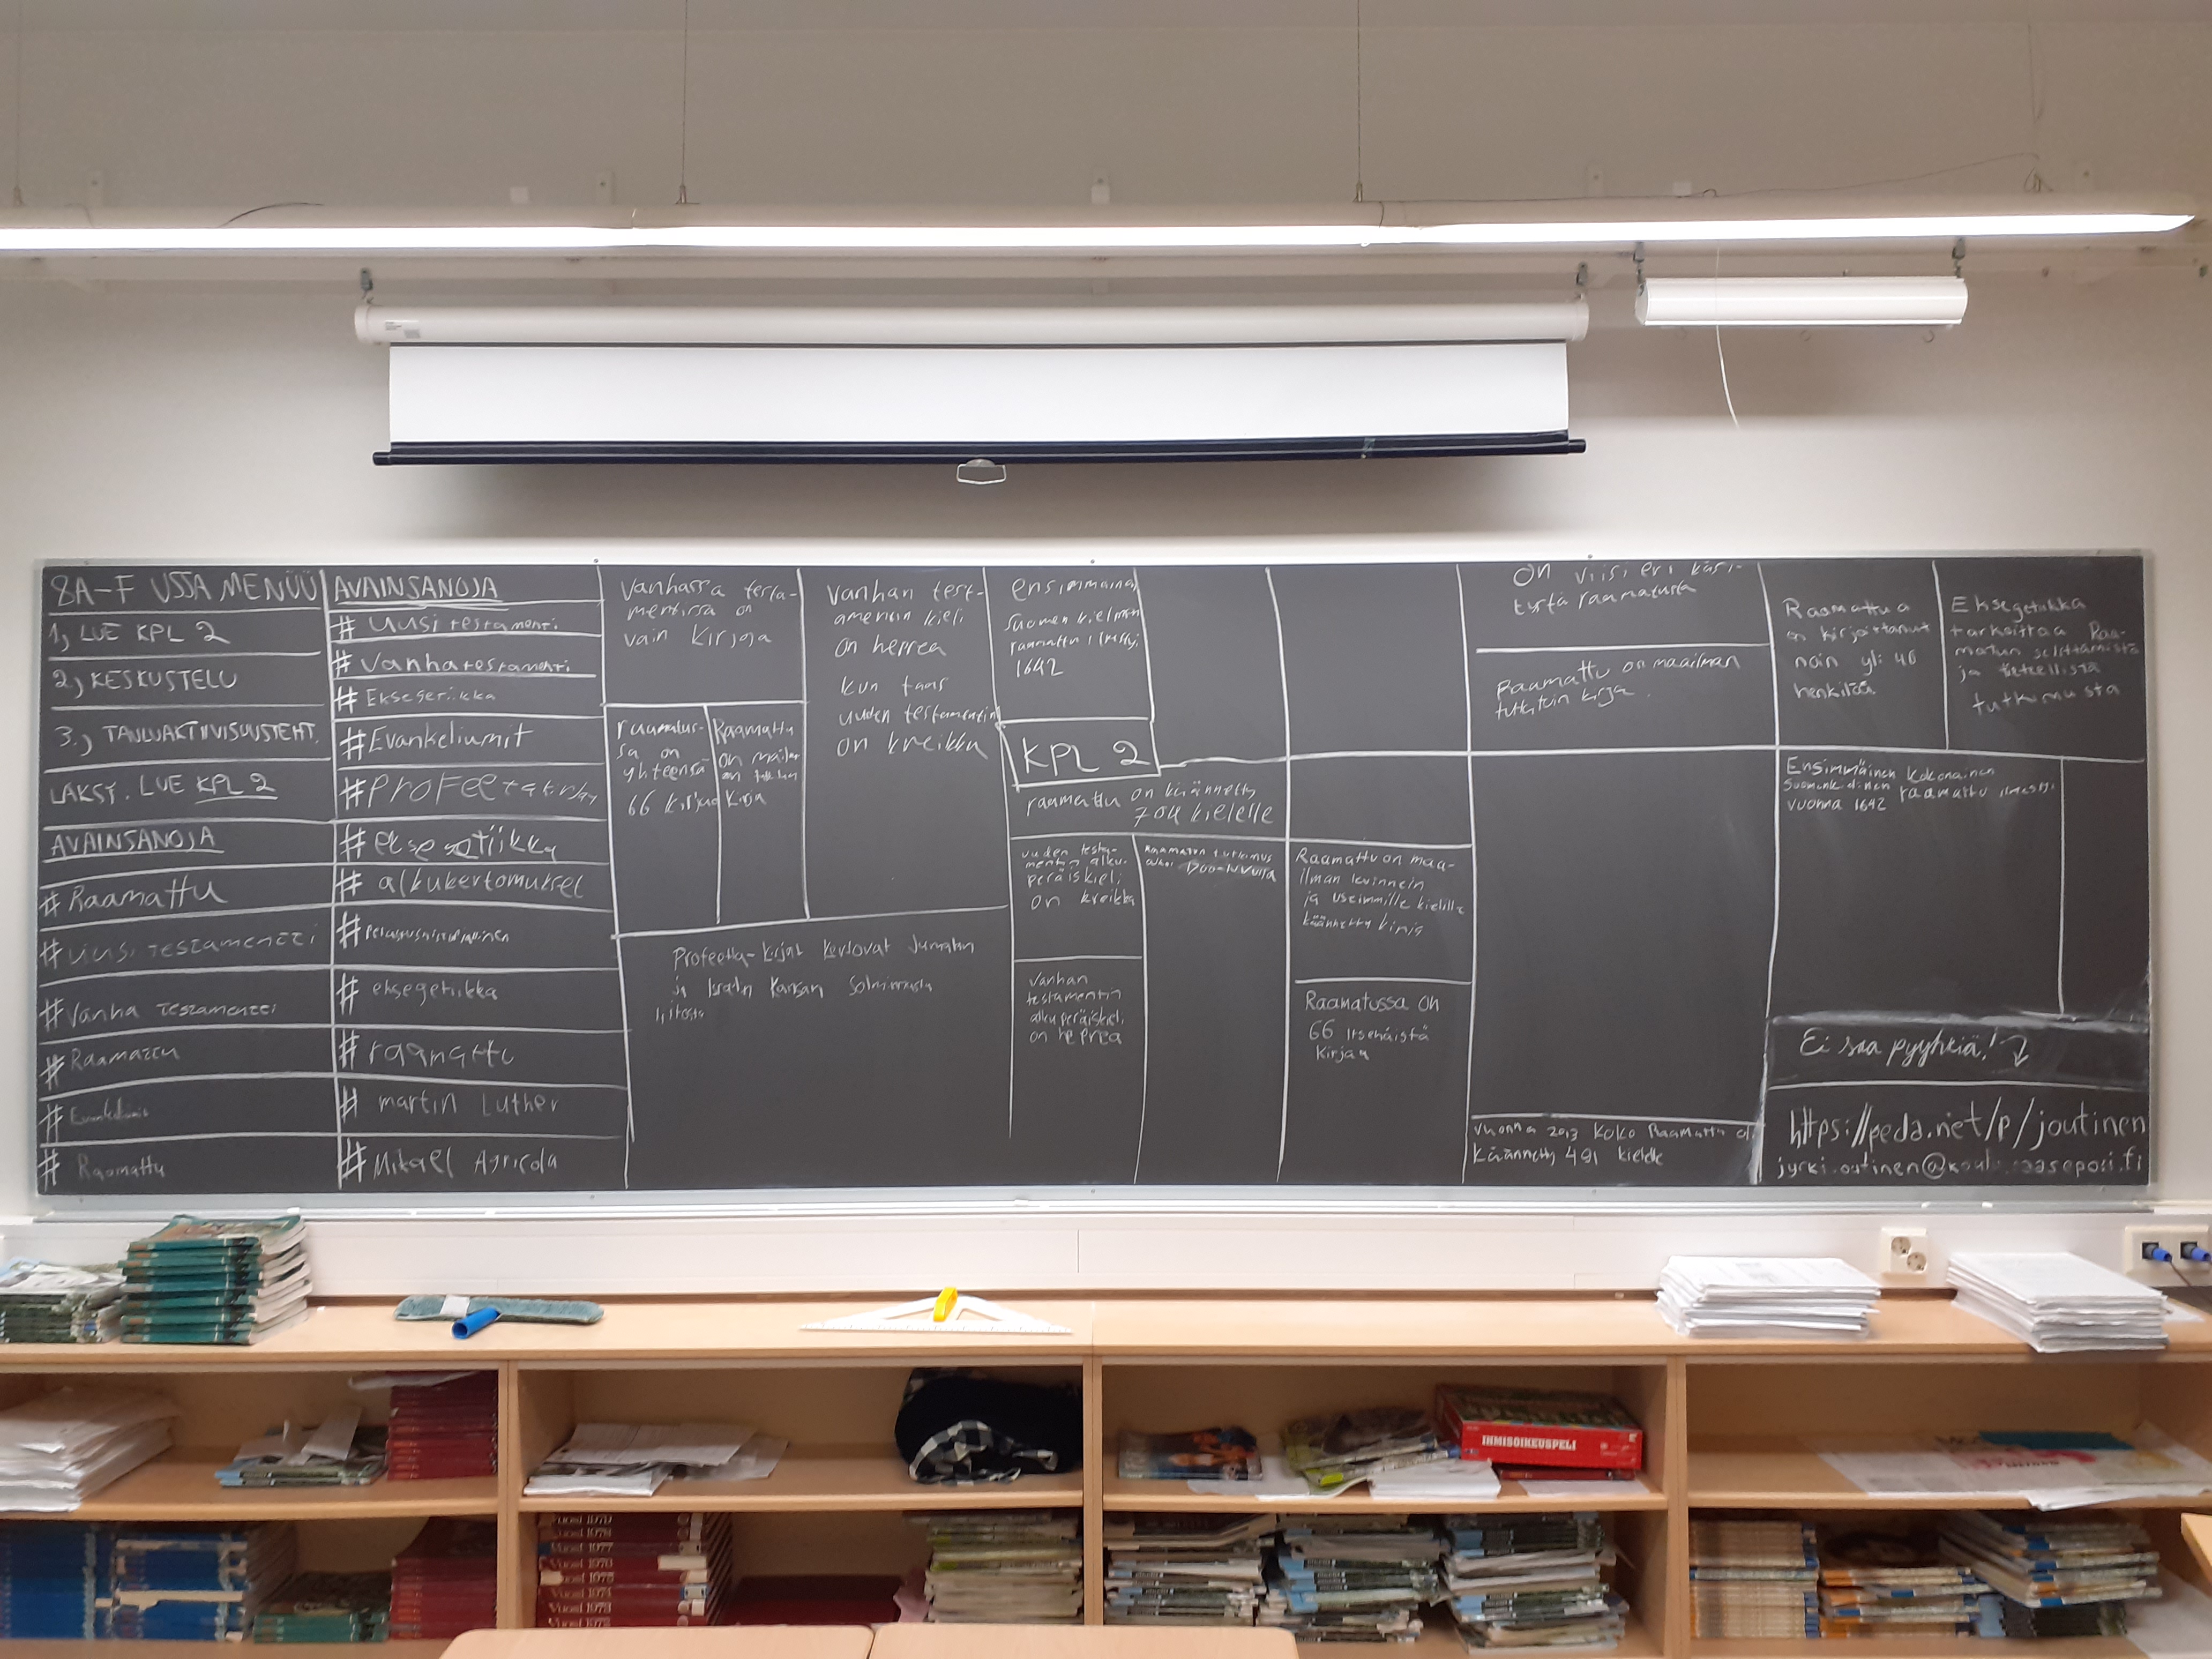 8A-F USSA MENÜÜ
1, LUE KPL 2
2, KESKUSTELU
3., TAULUAKTIIVISUUSTEHT.
LÄKSY. LUE KPL 2
AVAINSANOJA
# Raamattu
# Uusi testamentti
# Vanha testamentti
# Raamattu
# Raamattu
AVAINSANOJA
# Uusi testamentti
# Vanha testamentti
# Eksegetiikka
# Evankeliumit
# Profeetakirjat
# eksegetiikka
# alkukertomukset
# eksegetiikka
# raamattu
# martin Luther
# Mikael Agricola
Vanhassa testa-
mentissa on
vain kirjoja
raamatus-
sa on
yhteensä
66 kirjaa
Raamattu
on
kirja
vanhan test-
amentin kieli
on heprea
kun taas
uuden testamentin
on kreikka
Profeetta-kirjat kertovat Jumalan
ja Israelin kansan solmimasta
liitosta
ensimmäinen
suomen kielinen
raamattu ilmestyi
1642
KPL 2
raamattu on käännetty
704 kielelle
uuden testa-
mentin alku-
peräiskieli
on kreikka
Raamatun tutkimus
alkoi 1700-luvulla
vanhan
testamentin
alkuperäiskieli
on heprea
Raamattu on maa-
ilman levinnein
ja useimmille kielille
käännetty kirja
Raamatussa on
66 itsenäistä
kirjaa
On viisi eri käsi-
tystä raamatusta
Raamattu on maailman
tutkituin kirja.
vuonna 2013 koko Raamattu oli
käännetty 491 kielelle
Raamattua
on kirjoittanut
noin yli 40
henkilöä
Eksegetiikka
tarkoittaa Raa-
matun selittämistä
ja tieteellistä
tutkimusta
Ensimmäinen kokonainen
suomenkielinen raamattu ilmestyi
vuonna 1642
Ei saa pyyhkiä!
https://peda.net/p/joutinen
jyrki.outinen@koulu.raasepori.fi
IHMISOIKEUSPELI
Vuosi 1979
Vuosi 1978
Vuosi 1977
Vuosi 1976
Vuosi 1975
Vuosi 1974
Vuosi 1973